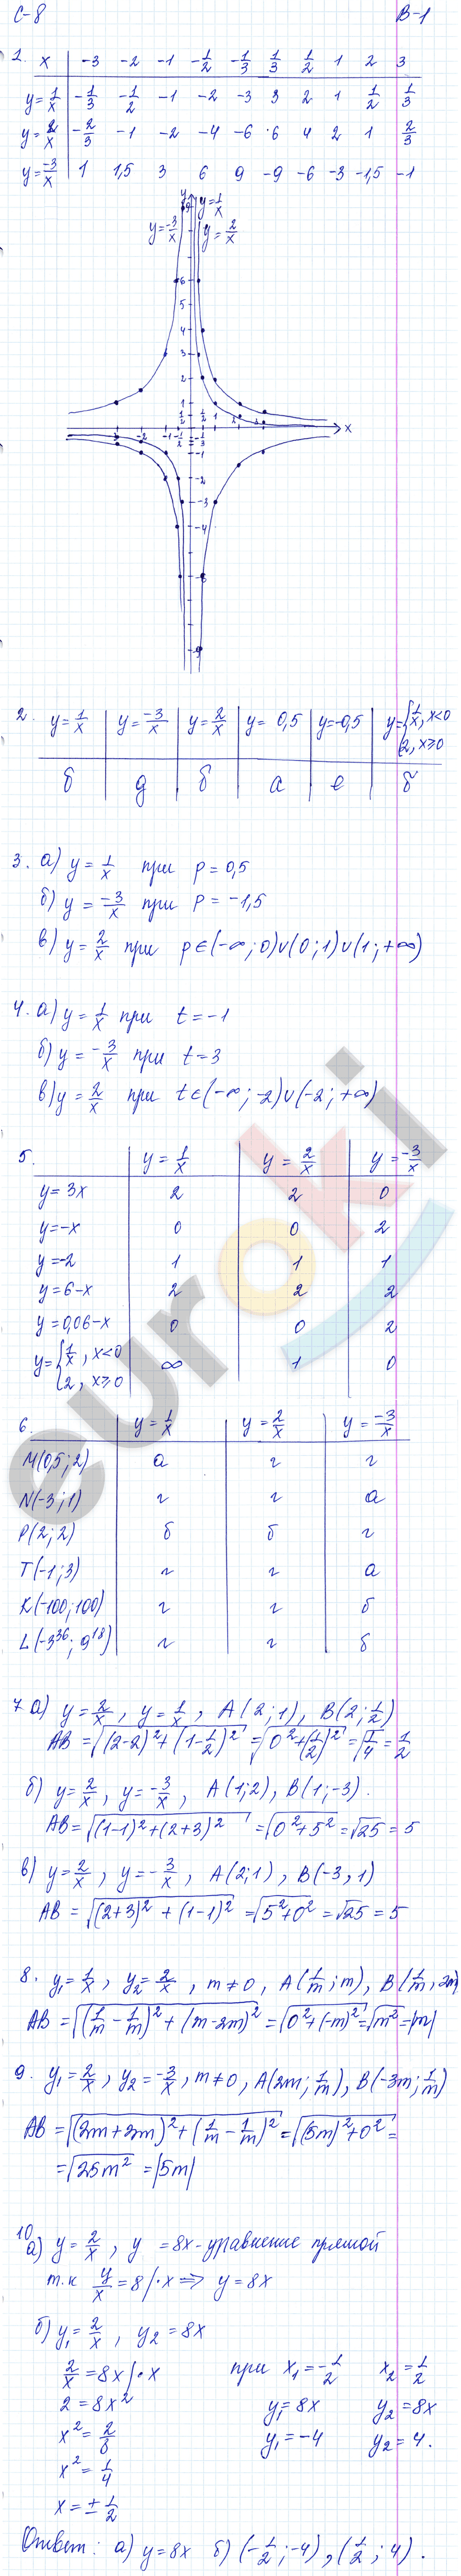 С-8 В-1
1. x -3 -2 -1 -1/2 -1/3 1/3 1/2 1 2 3
y=1/x -1/3 -1/2 -1 -2 -3 3 2 1 1/2 1/3
y=2/x -2/3 -1 -2 -4 -6 6 4 2 1 2/3
y=-3/x 1 1,5 3 6 9 -9 -6 -3 -1,5 -1
y y=1/x
y=-3/x y=2/x
x
2. y=1/x y=-3/x y=2/x y=0,5 y=-0,5 y={1/x, x<0
2, x≥0
б д б а е б
3. а) y=1/x при p=0,5
б) y=-3/x при p=-1,5
в) y=2/x при p∈(-∞;0)∪(0;1)∪(1;+∞)
4. а) y=1/x при t=-1
б) y=-3/x при t=3
в) y=2/x при t∈(-∞;-2)∪(-2;+∞)
5. y=1/x y=2/x y=-3/x
y=3x 2 2 0
y=-x 0 0 2
y=-2 1 1 1
y=6-x 2 2 2
y=0,06-x 0 0 2
y={1/x, x<0 ∞ 1 0
2, x≥0
6. y=1/x y=2/x y=-3/x
M(0,5;2) а г г
N(-3;1) г г а
P(2;2) б б г
T(-1;3) г г а
K(-100;100) г г б
L(-3^36; 9^18) г г б
7. а) y=2/x, y=1/x, A(2;1), B(2;1/2)
AB=√((2-2)²+(1-1/2)²)=√(0²+(1/2)²)=√(1/4)=1/2
б) y=2/x, y=-3/x, A(1;2), B(1;-3).
AB=√((1-1)²+(2+3)²)=√(0²+5²)=√25=5
в) y=2/x, y=-3/x, A(2;1), B(-3,1)
AB=√((2+3)²+(1-1)²)=√(5²+0²)=√25=5
8. y₁=1/x, y₂=2/x, m≠0, A(1/m;m), B(1/m,2m)
AB=√((1/m-1/m)²+(m-2m)²)=√(0²+(-m)²)=√m²=|m|
9. y₁=2/x, y₂=-3/x, m≠0, A(2m;1/m), B(-3m;1/m)
AB=√((2m+3m)²+(1/m-1/m)²)=√((5m)²+0²)=
=√25m²=|5m|
10
а) y=2/x, y=8x-уравнение прямой
т.к y/x=8|·x⇒ y=8x
б) y₁=2/x, y₂=8x
2/x=8x|·x при x₁=-1/2 x₂=1/2
2=8x² y₁=8x y₂=8x
x²=2/8 y₁=-4 y₂=4.
x²=1/4
x=±1/2
Ответ: а) y=8x б) (-1/2;-4), (1/2;4).
euroki